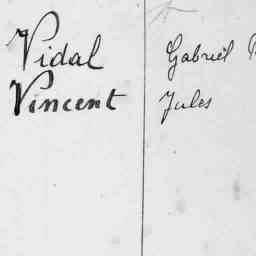 Vidal Gabriel
Vincent Jules